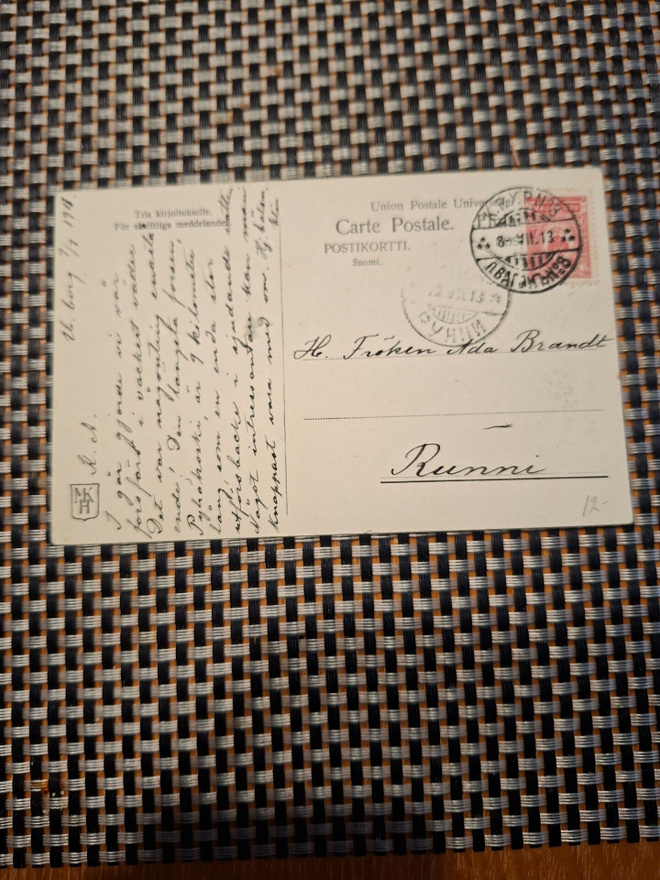 Tila kirjoitukselle.
För skriftliga meddelanden
Union Postale Universelle
Carte Postale.
POSTIKORTTI.
Suomi.
8 VII.13
VII.13
РУННИ
H. Fröken Ada Brandt
Runni
12-
MK
H
Ul. borg 7/7 1913.
K. A.
I går gjorde vi vår
forsfärd i vackert väder.
Det var någonting enastå
ende! Den längsta forsen,
Pyhäkoski, är 9 kilometer
lång som en enda stor
utförsbacke i sjudande
Något intressantare kan man
knappast vara med om. Hj. hälsn.